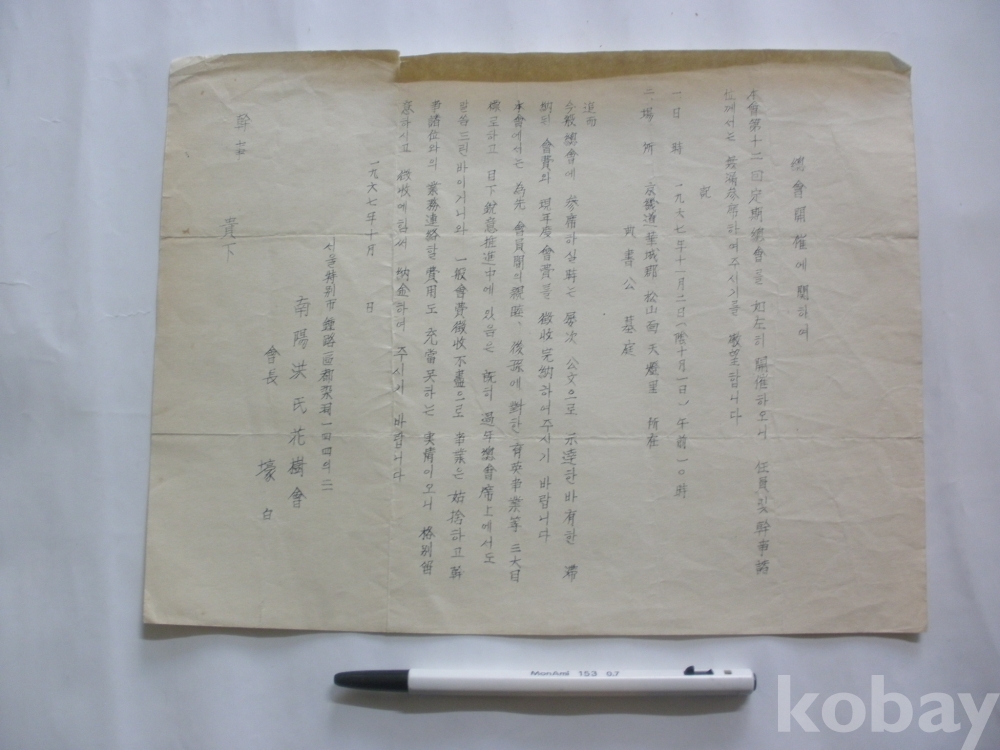 總會開催에 關하여
本會第十二回定期總會를 如左히 開催하오니 任員及幹事諸
位께서는 參席하여주시기를 敬望합니다
記
一 日 時 一九六七年十一月二日(陰十月一日) 午前一〇時
二. 場 所 京畿道華城郡 松山面天燈里 所在
判書公 墓庭
追而
今般總會에 參席하실時는 屢次 公文으로 示達한바有한 滯
納된 會費와 現年度會費를 徵收完納하여주시기 바랍니다
本會에서는 為先 會員間의親睦、後孫에對한 育英事業等 三大目
標로하고 目下銳意推進中에 있음은 既히 過年總會席上에서도
말씀드린바이거니와 一般會費徵收不盡으로 事業은 姑捨하고 幹
事諸位와의 業務連絡할費用도 充當못하는 実情이오니 格別留
意하시고 徵收에힘써 納金하여 주시기 바랍니다
一九六七年十月 日
서울特別市 鍾路區 一四四의 二
南陽洪氏花樹會
會長 壕 白
幹事 貴下
MonAmi 153 0.7
kobay